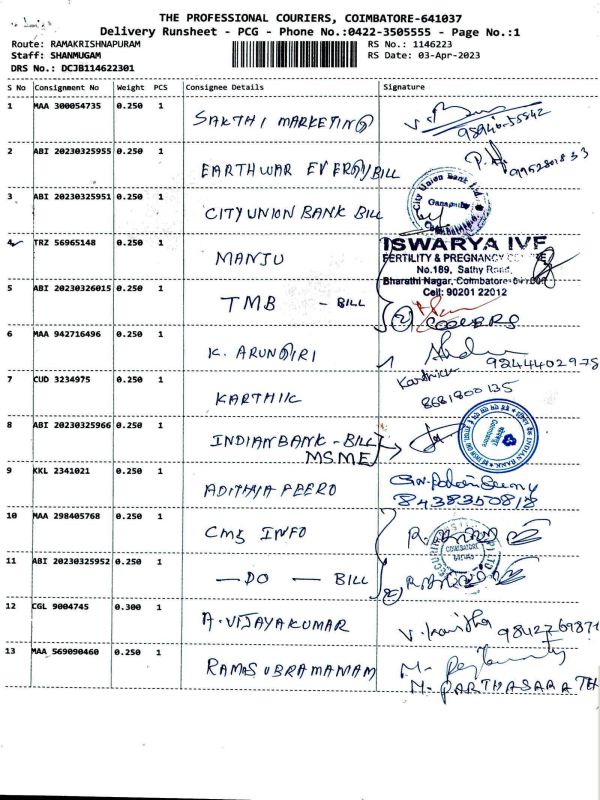 THE PROFESSIONAL COURIERS, COIMBATORE-641037
Delivery Runsheet - PCG - Phone No.:0422-3505555 - Page No.:1
Route: RAMAKRISHNAPURAM
Staff: SHANMUGAM
DRS No.: DCJB114622301
RS No.: 1146223
RS Date: 03-Apr-2023
S No Consignment No Weight PCS Consignee Details Signature
1 MAA 300054735 0.250 1 SAKTHI MARKETING
98940-55542
2 ABI 20230325955 0.250 1 EARTHWAR ENERGY/BILL
9952801833
3 ABI 20230325951 0.250 1 CITY UNION BANK BILL
City Union Bank Ltd.
Ganapathy
4 TRZ 56965148 0.250 1 MANJU
ISWARYA IVF
FERTILITY & PREGNANCY CENTRE
No.189, Sathy Road,
Bharathi Nagar, Coimbatore-641006
Cell: 90201 22012
5 ABI 20230326015 0.250 1 TMB - BILL
② COVERS
6 MAA 942716496 0.250 1 K. ARUNGIRI
9244402975
7 CUD 3234975 0.250 1 KARTHIK
Karthika
8681800135
8 ABI 20230325966 0.250 1 INDIAN BANK - BILL
MSME
INDIAN BANK
9 KKL 2341021 0.250 1 ADITHYA FEERO
8438350818
10 MAA 298405768 0.250 1 CMS INFO
COIMBATORE
11 ABI 20230325952 0.250 1 — DO — BILL
②
12 CGL 9004745 0.300 1 A. VIJAYAKUMAR
9842769871
13 MAA 569090460 0.250 1 RAMASUBRAMANIAM
M. PARTHASARATH